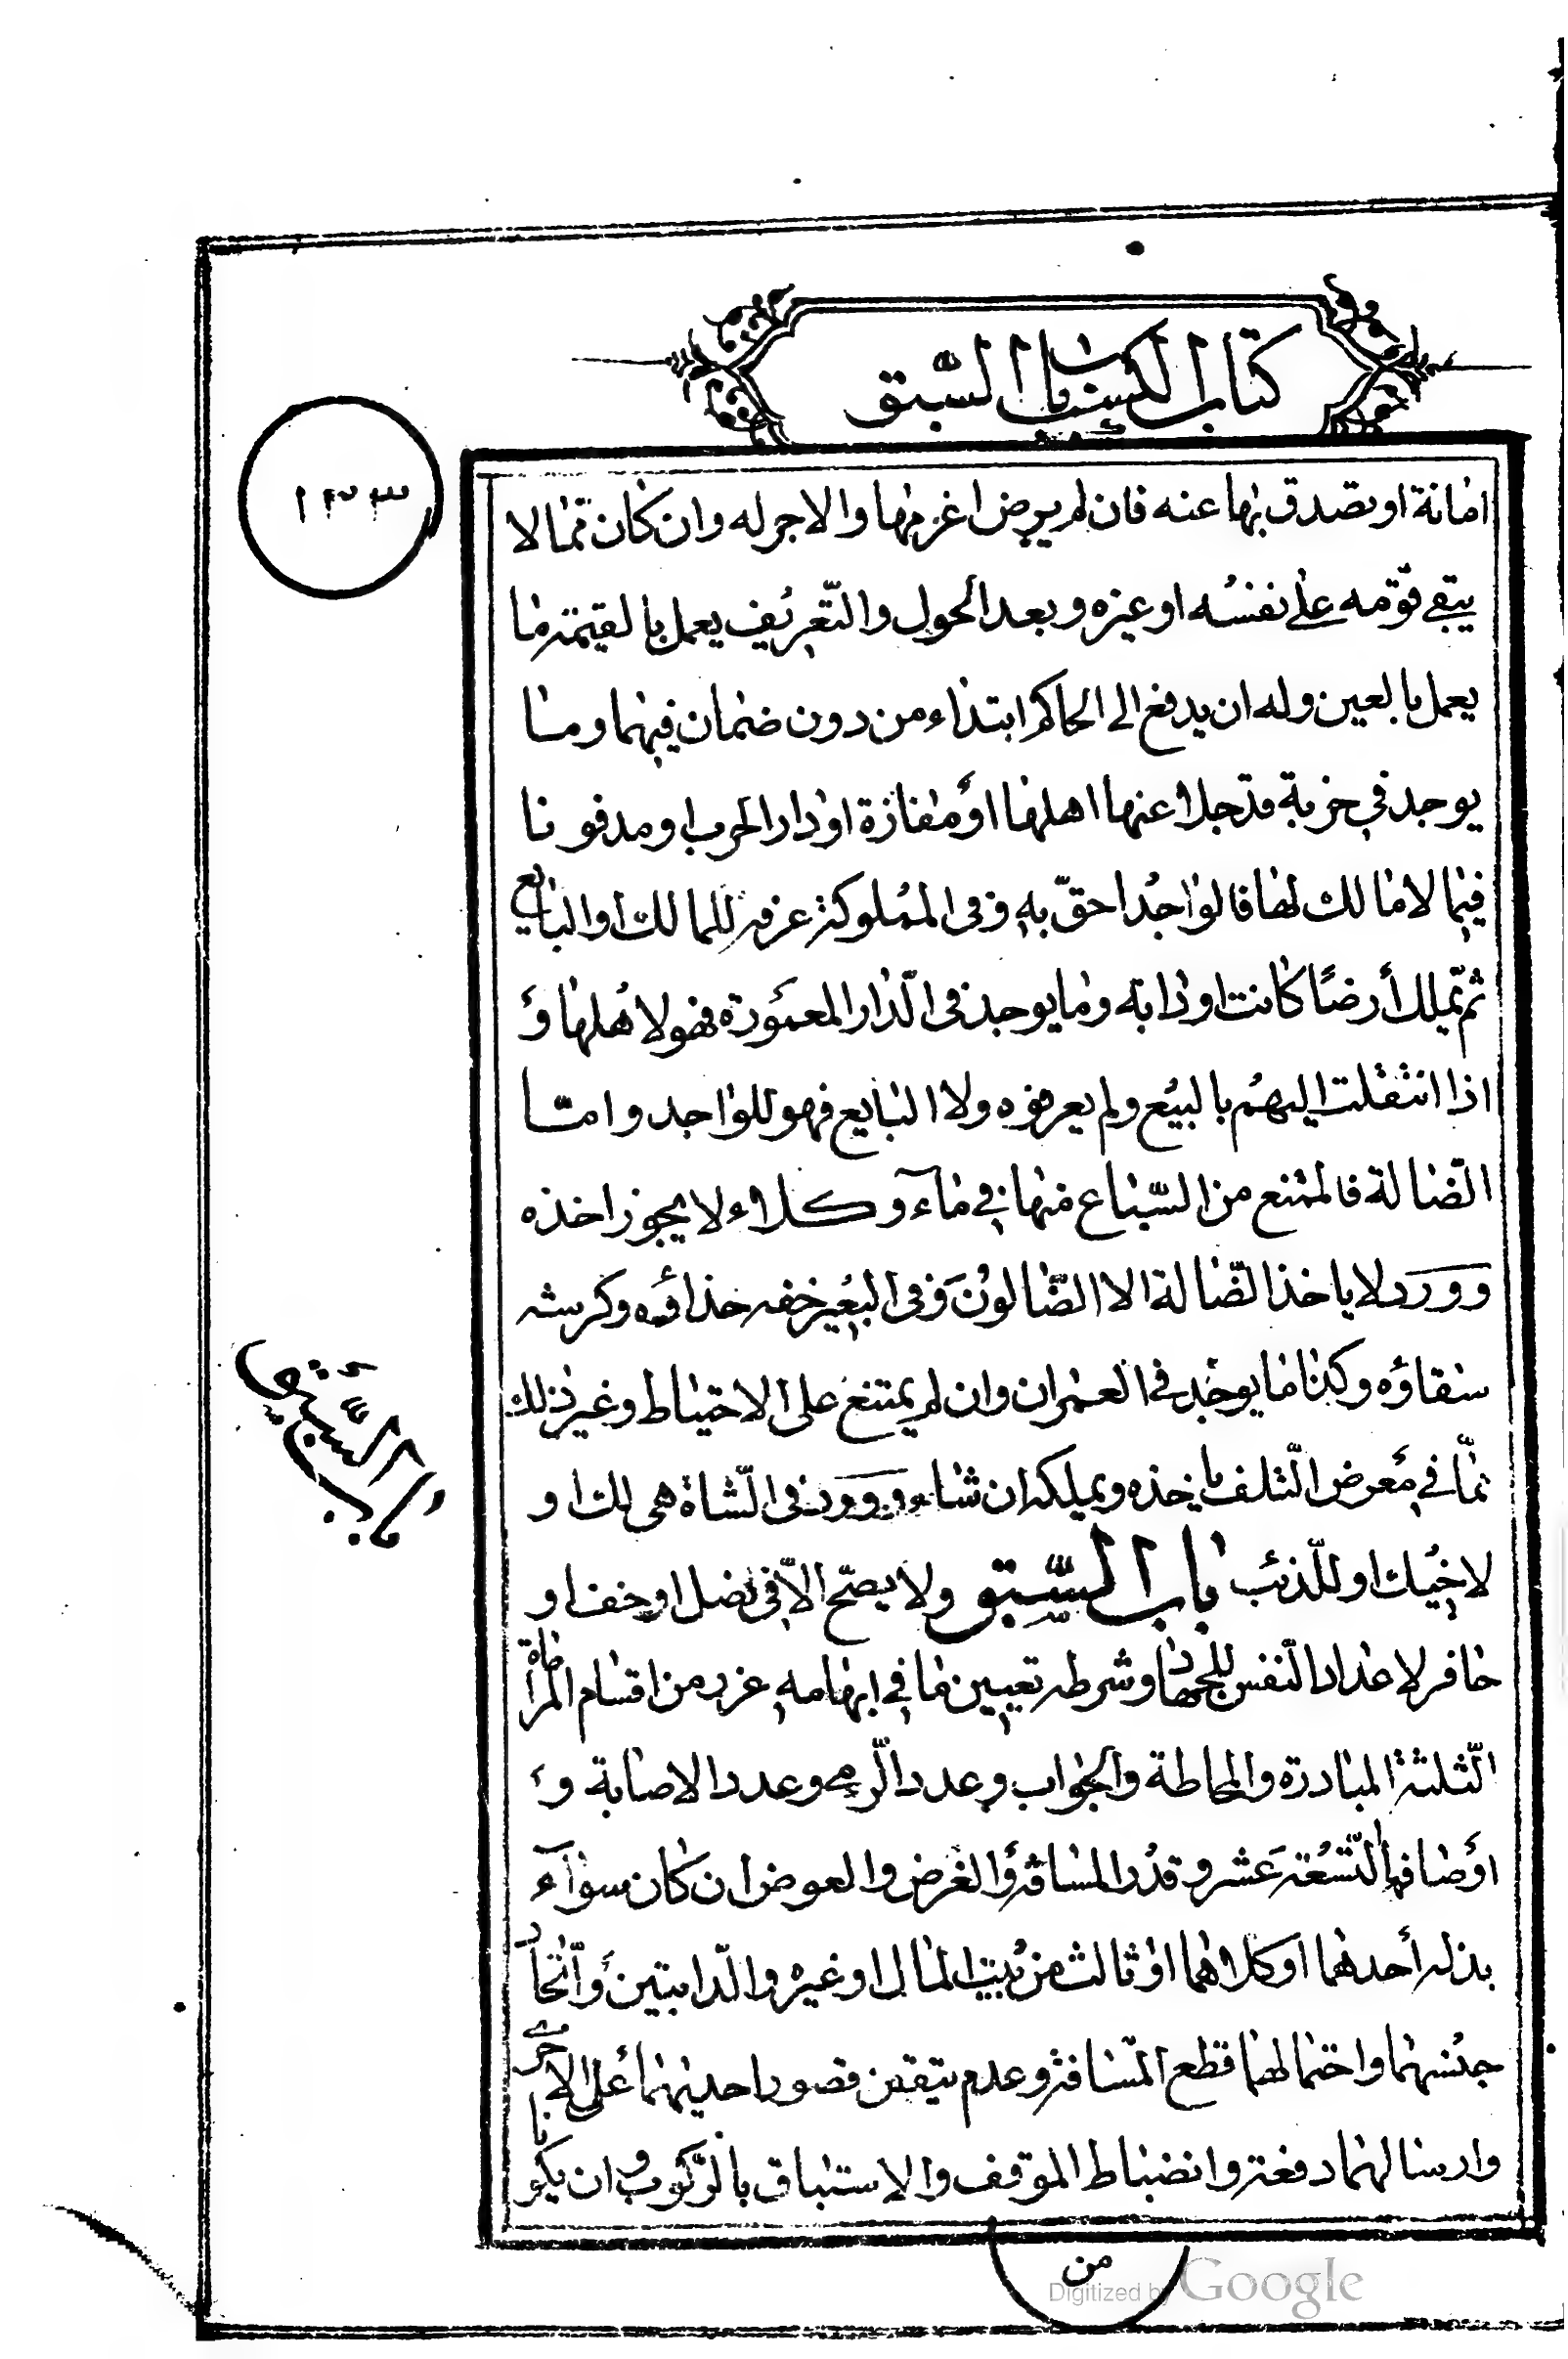 كتاب المكاسب باب السّبق
١٢٣
امانة او تصدق بها عنه فان لم يرض اغرمها والاجر له وان كان ممّا لا
يبقى قوّمه على نفسه او غيره وبعد الحول والتّعريف يعمل بالقيمة ما
يعمل بالعين وله ان يدفع الى الحاكم ابتداء من دون ضمان فيهما وما
يوجد في خربة قد جلا عنها اهلها او مفازة او دار الحرب او مدفونا
فيما لا مالك لها فالواجد احقّ به وفى المملوكة عرفه للمالك او البايع
ثم تملك أرضًا كانت او دابة وما يوجد فى الّدار المعمورة فهو لاهلها و
اذا انتقلت اليهم بالبيع ولم يعرفوه ولا البايع فهو للواجد وامّا
الضّالة فالممتنع من السّباع منها في ماء وكلاء لا يجوز اخذه
وورد لا ياخذ الضّالة الا الضّالون وفى البعير خفه حذاؤه وكرشه
سقاؤه وكذا ما يوجد فى العمران وان لم يمتنع على الاحتياط وغير ذلك
ممّا في معرض التّلف ياخذه ويملكه ان شاء وورد فى الشّاة هى لك او
لاخيك او للّذئب باب السّبق ولا يصحّ الّا في نصل او خف او
حافر لاعداد النّفس للجهاد وشرطه تعيين ما في ابهامه غرر من اقسام المراماة
الثّلثة المبادرة والمحاطة والحواب وعدد الّرمى وعدد الاصابة و
اوصافها التّسعة عشر وقدر المسافة والغرض والعوض ان كان سواء
بذله أحدهما او كلاهما او ثالث من بيت المال او غيره والّدابتين واتّحاد
جنسهما واحتمالهما قطع المسافة وعدم تيقن قصور احديهما على الاخرى
وارسالهما دفعة وانضباط الموقف والاستباق بالرّكوب وان يكونا
من
باب السّبق
Digitized by Google